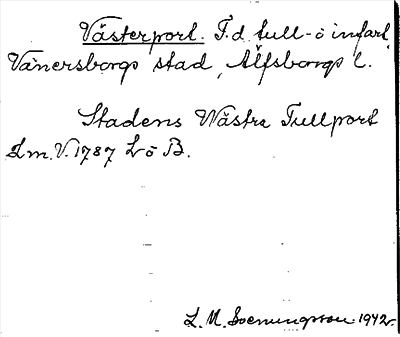 Västerport. F.d. tull- o infart,
Vänersborgs stad, Älfsborgs l.
Stadens Wästra Tullport
Lm. V. 1787 Lö B.
L. M. 1942.